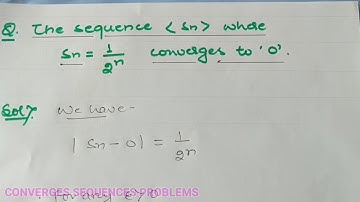 Q. The sequence <Sn> where
Sn = 1/2^n converges to '0'.
Solⁿ. We have-
| Sn - 0 | = 1/2^n
CONVERGES SEQUENCES PROBLEMS
: For any ε>0